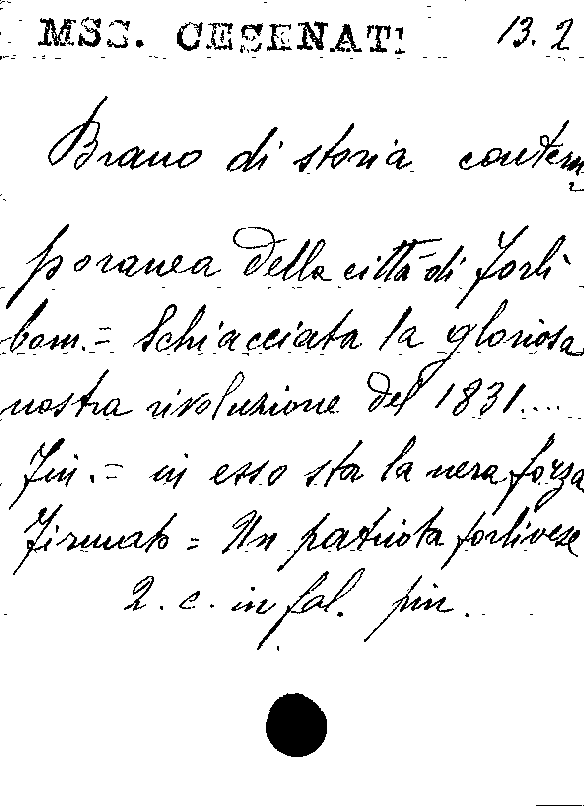 MSS. CESENATI 13.2
Brano di storia contem
poranea della città di Forlì
Com. = Schiacciata la gloriosa
nostra rivoluzione del 1831....
Fin. = in esso sta la vera forza
Firmato = Un patriota forlivese
2. c. in fol. pin.